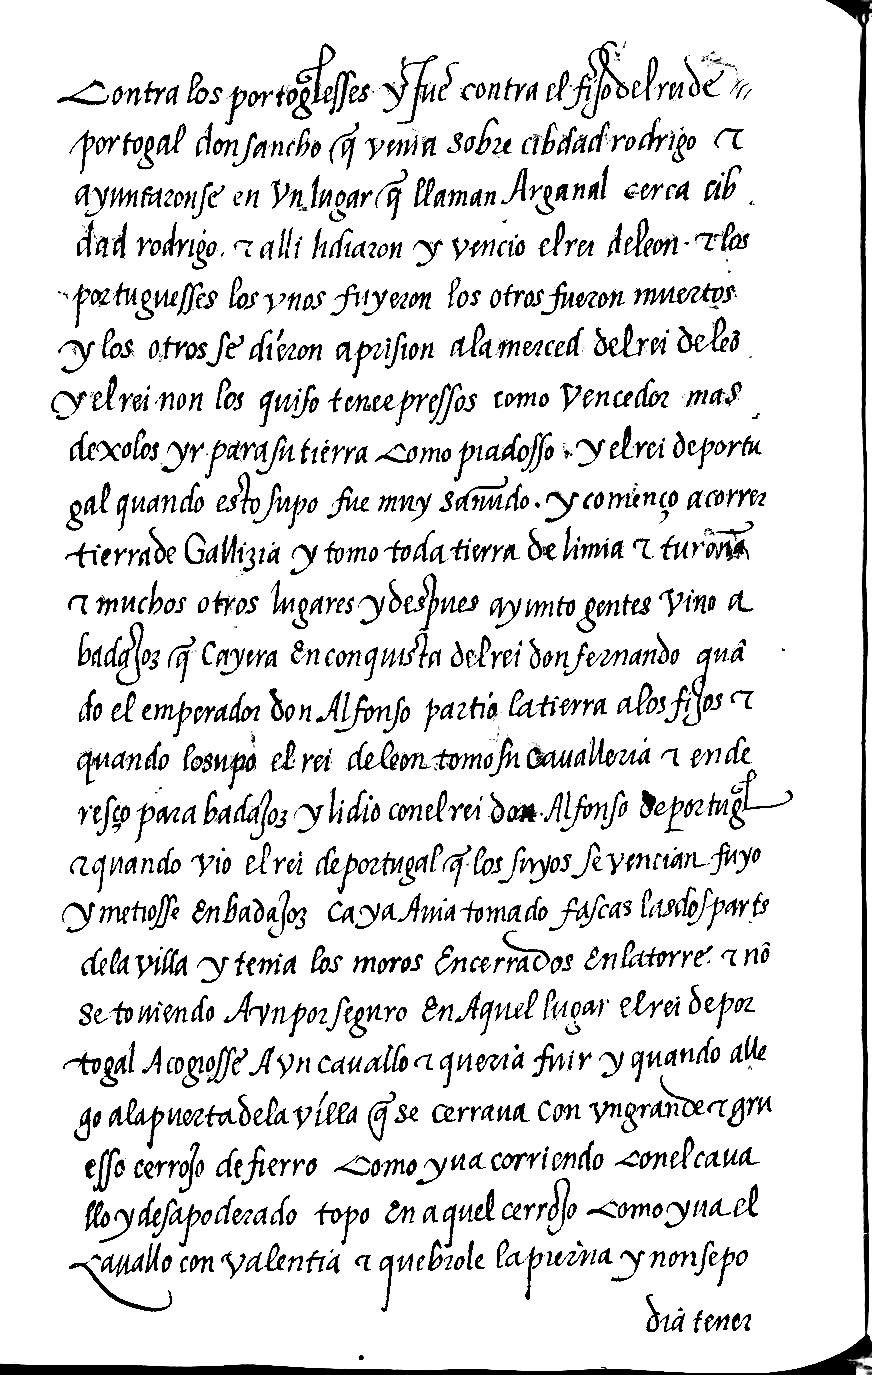 Contra los portogLesses y fue contra el fijo del rei de
portogal don sancho q̃ venia sobre cibdad rodrigo ꞇ
ayuntaronse en vn lugar q̃ llaman Arganal cerca cib
dad rodrigo. ꞇ alli lidiaron y vencio el rei de leon. ꞇ los
portuguesses los vnos fuyeron los otros fueron muertos
y los otros se dieron a prision a la merced del rei de leõ
y el rei non los quiso tener pressos como vencedor mas
dexolos yr para su tierra como piadosso. y el rei de portu
gal quando esto supo fue muy sañudo. y començo a correr
tierra de Gallizia y tomo toda tierra de limia ꞇ turonia
ꞇ muchos otros lugares y despues ayunto gentes vino a
badajoz q̃ cayera en conquista del rei don fernando quã
do el emperador don Alfonso partio la tierra a los fijos ꞇ
quando lo supo el rei de leon tomo su cavalleria ꞇ ende
resço para badajoz y lidio con el rei don Alfonso de portugl
ꞇ quando vio el rei de portugal q̃ los suyos se vencian fuyo
y metiosse en badajoz ca ya Avia tomado fascas las dos parts
de la villa y tenia los moros encerrados en la torre. ꞇ nõ
se toviendo Avn por seguro en Aquel lugar el rei de por
togal Acogiosse A vn cavallo ꞇ queria fuir y quando alle
go a la puerta de la villa q̃ se cerraua con vn grande ꞇ gru
esso cerrojo de fierro como yua corriendo con el caua
llo y desapoderado topo en aquel cerrojo como yua el
cauallo con valentia ꞇ quebrole la pierna y non se po
dia tener